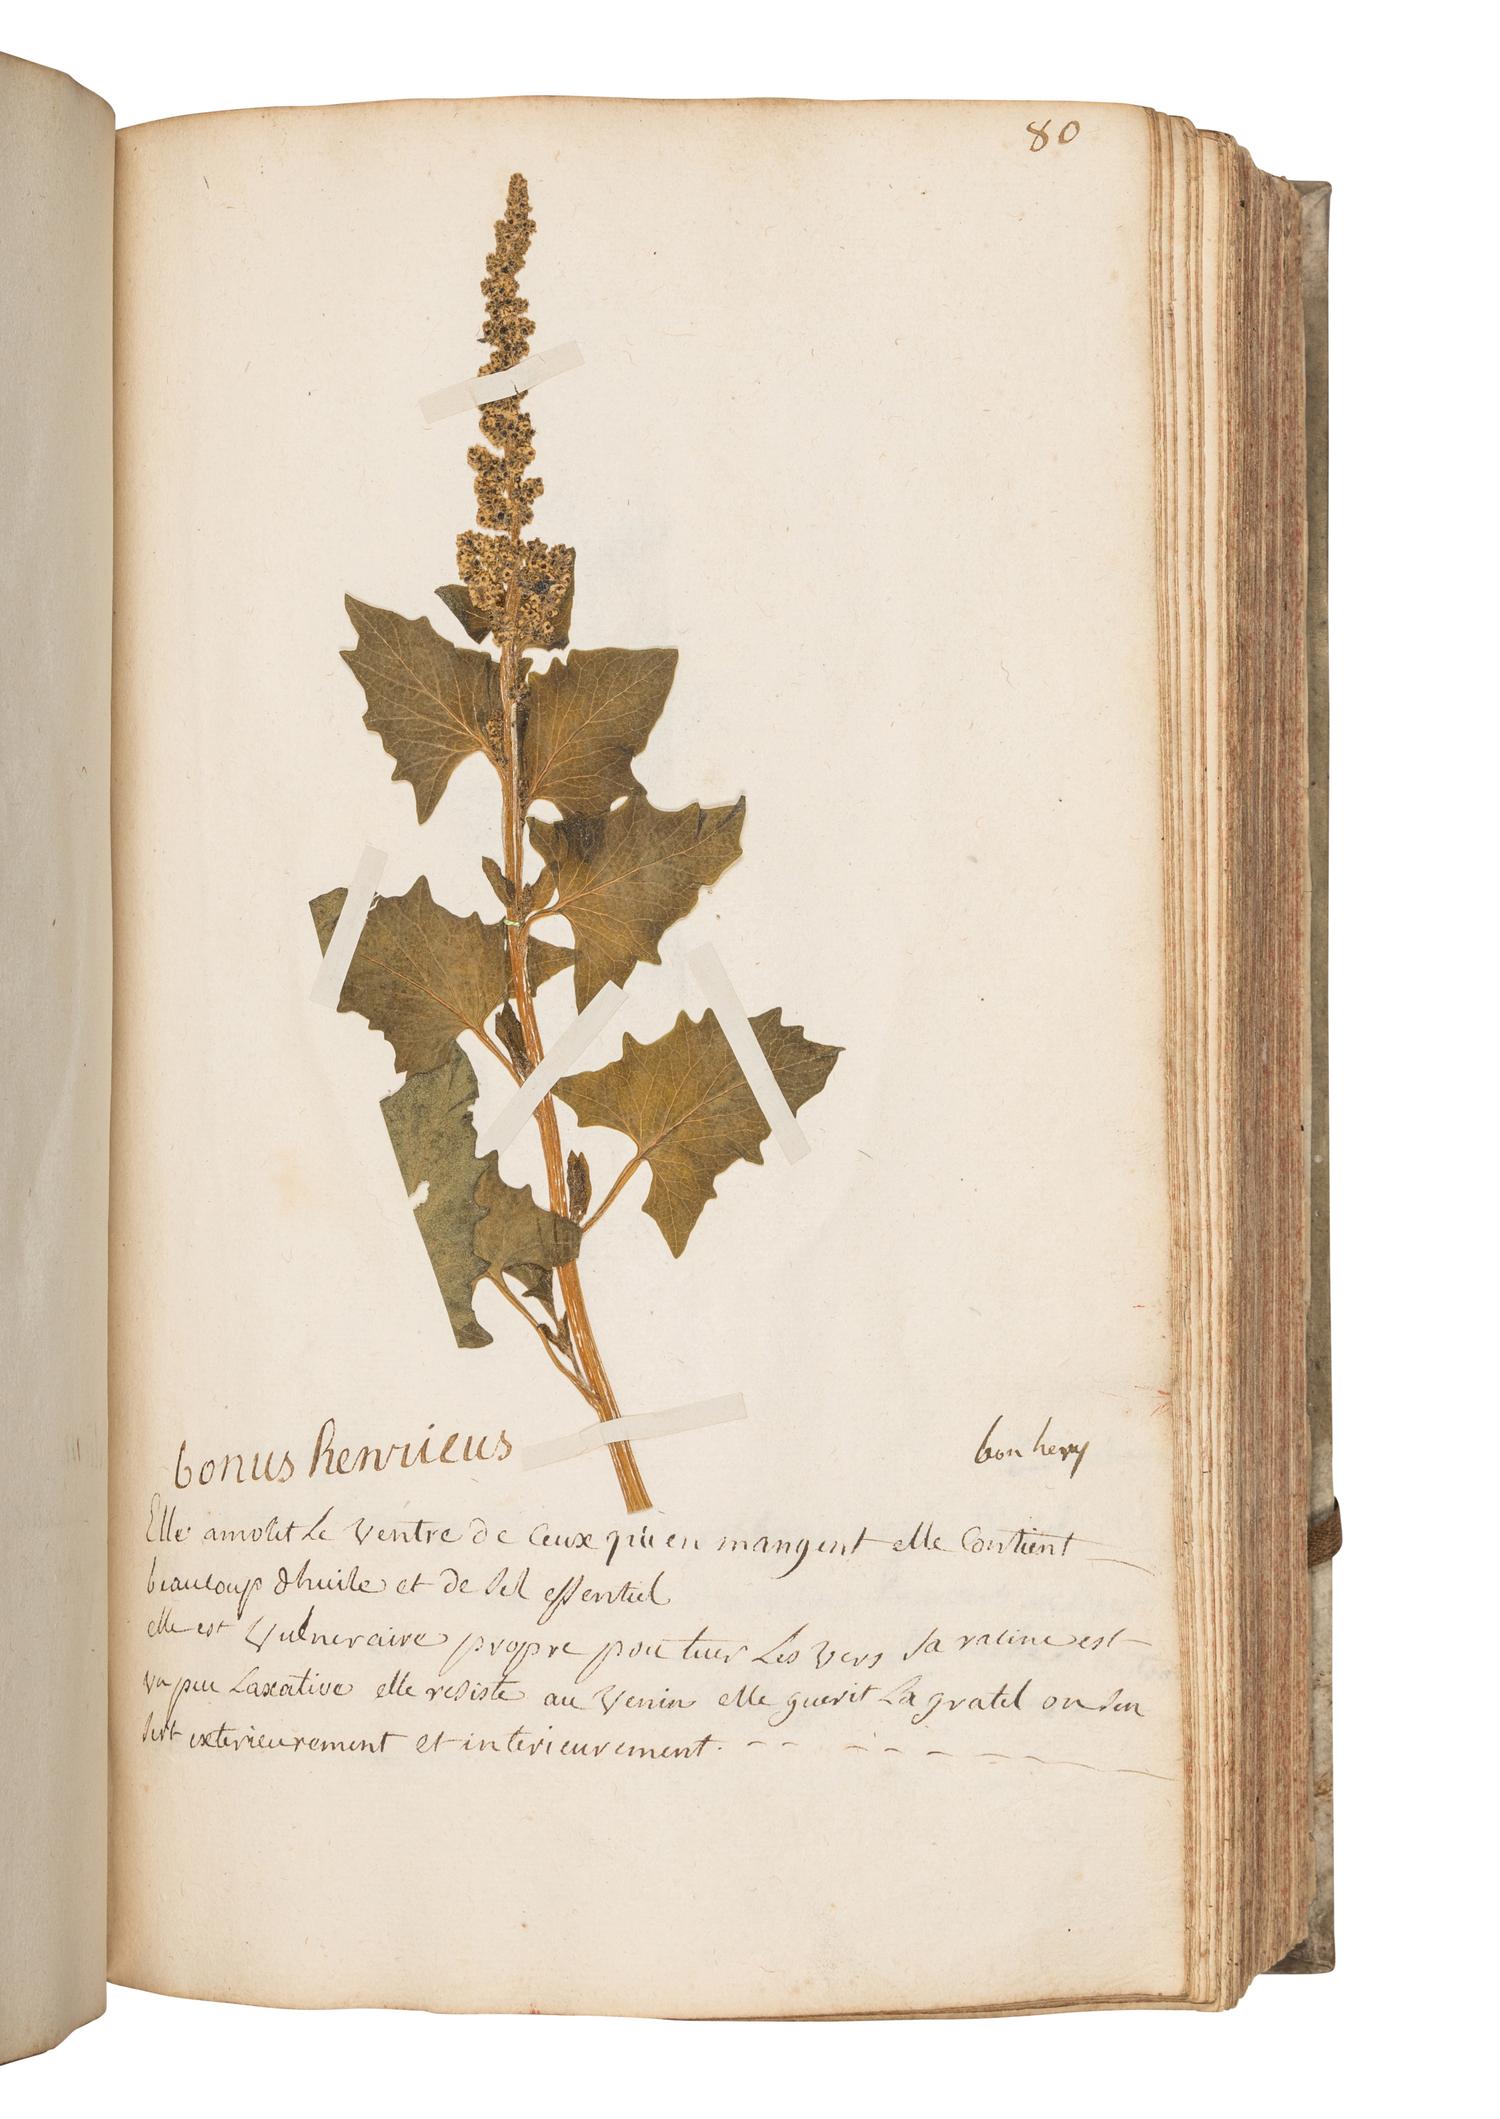 80
bonus henricus
bon henry
Elle amolit Le Ventre de Ceux qui en mangent elle Contient
beaucoup dhuile et de sel essentiel
elle est Vulneraire propre pour tuer Les Vers sa racine est
un peu Laxative elle resiste au Venin elle guerit La gratel on sen
sert exterieurement et interieurement.